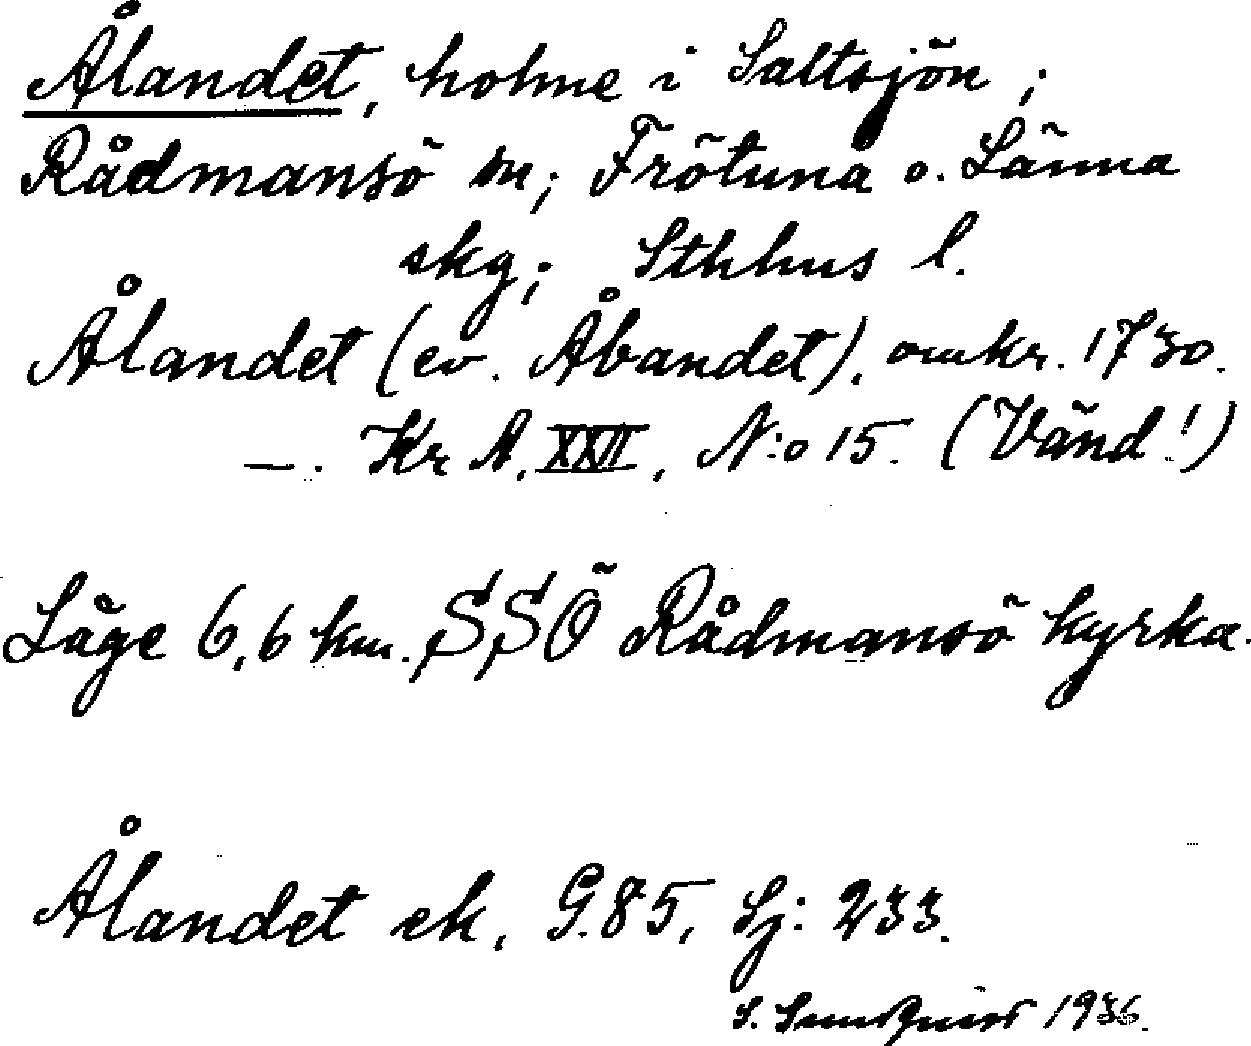 Ålandet, holme i Saltsjön;
Rådmansö sn; Frötuna o. Länna
skg; Sthlms l.
Ålandet (ev. Åbandet), omkr. 1730.
—. Kr A. XXII, N:o 15. (Vänd!)
Läge 6,6 km. SSÖ Rådmansö kyrka.
Ålandet ek. G.85, Sj: 233.
S. 1936.